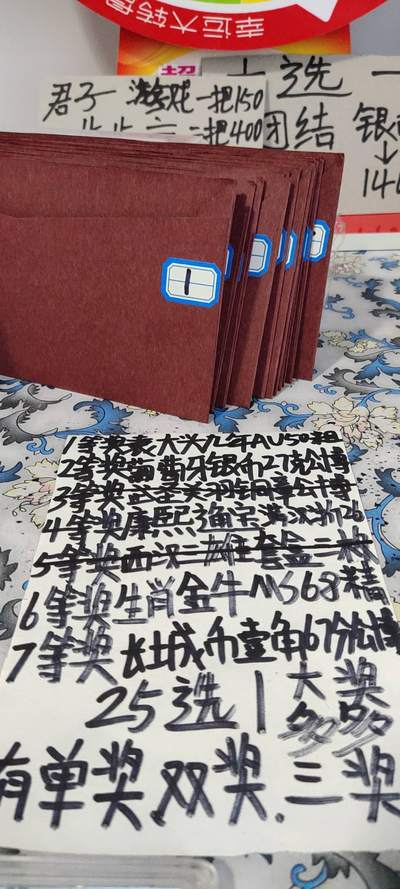 幸运大转盘
君子 游戏一把150
二把400
选一
团结 银
140
1
1等奖袁大头九年AU50粗
2等奖葡萄牙银币27克公博
3等奖武圣关羽铜章公博
4等奖康熙通宝满汉浙26
5等奖西汉三 套盒三枚
6等奖生肖金牛MS68精
7等奖长城币壹角67分公博
25选1大奖多多
有单奖.双奖.三奖